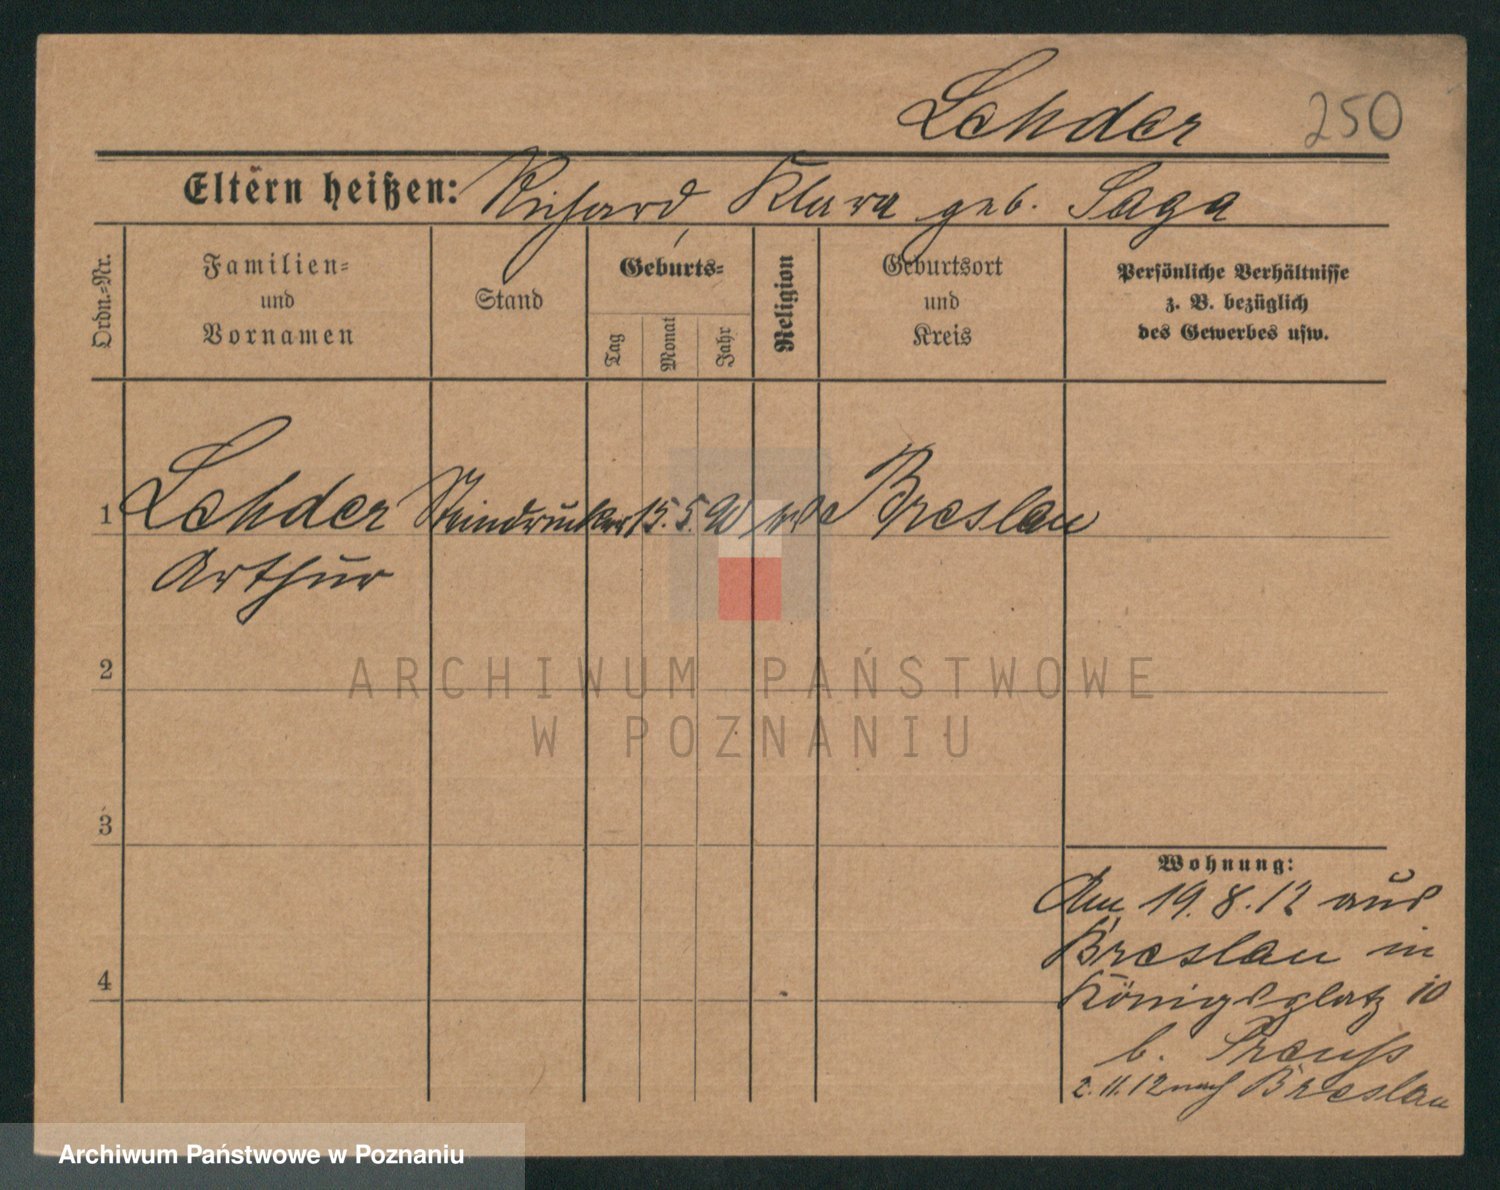 Lehder 250
Eltern heißen: Richard Klara geb. Saga
Ordn.-Nr.
Familien-
und
Vornamen
Stand
Geburts-
Tag
Monat
Jahr
Religion
Geburtsort
und
Kreis
Persönliche Verhältnisse
z. B. bezüglich
des Gewerbes usw.
1 Lehder Steindrucker 15. 5. 90 Breslau
Arthur
2
3
4
Wohnung:
Am 19. 8. 12 aus
Breslau in
Königsplatz 10
b. Preuß
2. 11. 12 nach Breslau
ARCHIWUM PAŃSTWOWE
W POZNANIU
Archiwum Państwowe w Poznaniu